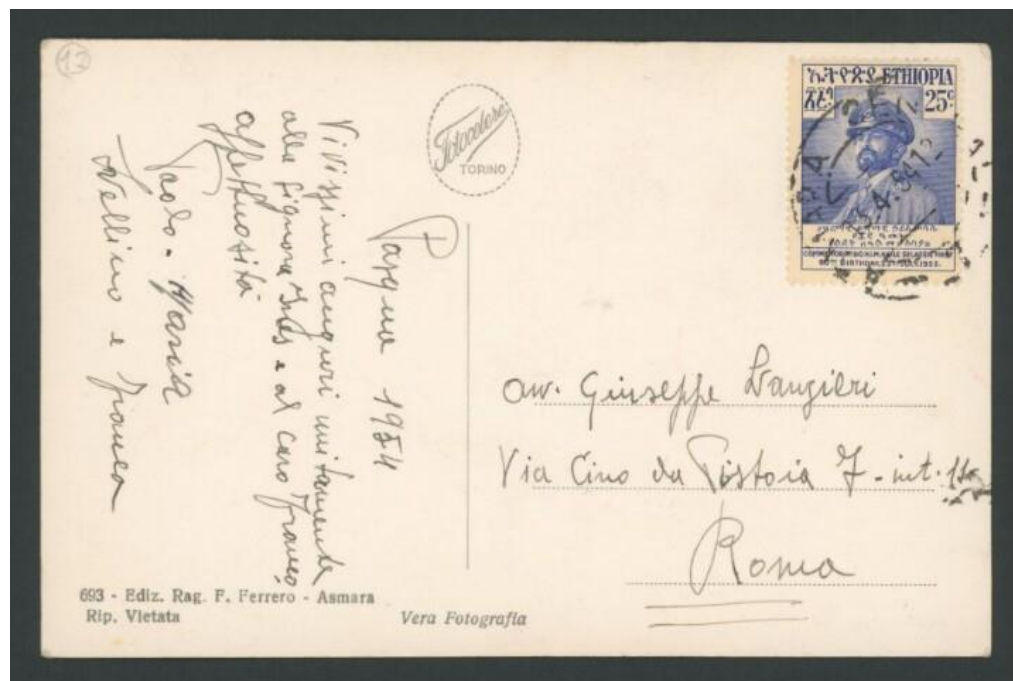 12
Fotocelere
TORINO
Pasqua 1954
Vivissimi auguri unitamente
alla Signora Ines e al caro Franco,
affettuosità
Paolo - Maria
Nellino e Franca
ኢትዮጵያ ETHIOPIA
25c
5.4.54
av. Giuseppe
Via Cino da Pistoia 7 - int.
Roma
693 - Ediz. Rag. F. Ferrero - Asmara
Rip. Vietata
Vera Fotografia